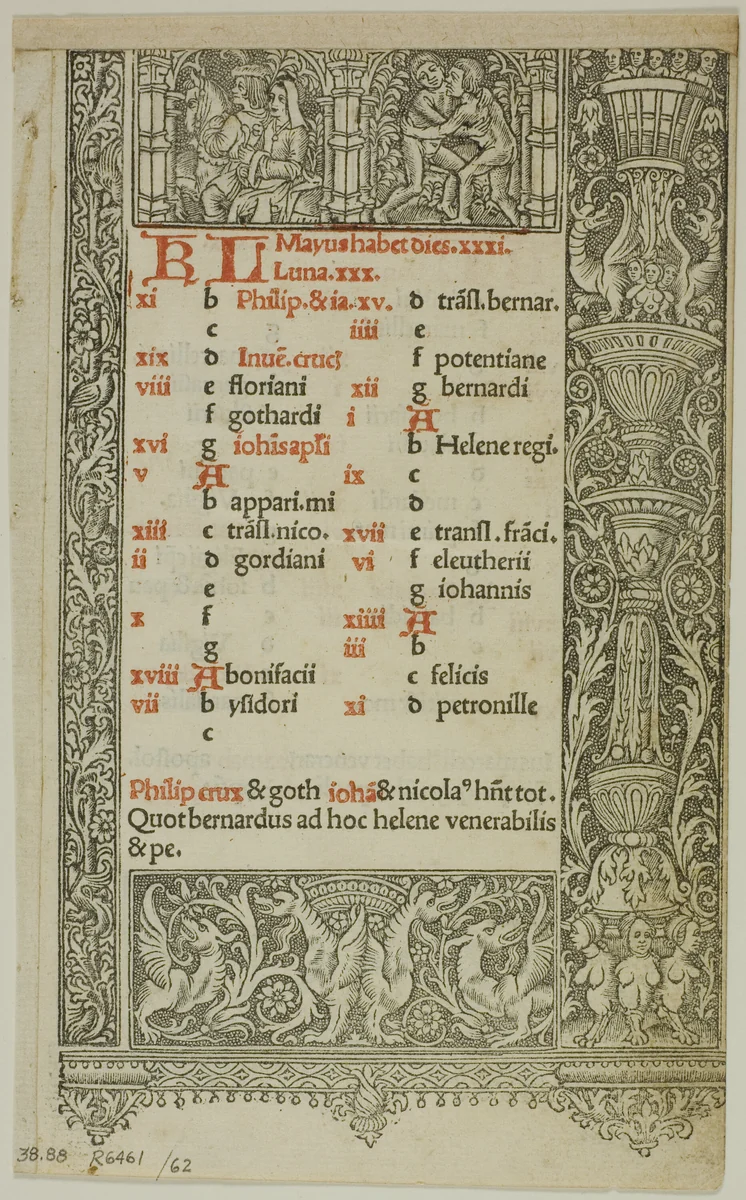 KL Mayus habet dies.xxxi.
Luna.xxx.
xi b Philip.&ia.
c
xix d Inuē.cruc
viii e floriani
f gothardi
xvi g iohis apli
v A
b appari.mi
xiii c trāsl.nico.
ii d gordiani
e
x f
g
xviii A bonifacii
vii b ysidori
c
xv. d trāsl.bernar.
iiii e
f potentiane
xii g bernardi
i A
b Helene regi.
ix c
d
xvii e transl.frāci.
vi f eleutherii
g iohannis
xiiii A
iii b
c felicis
xi d petronille
Philip crux & goth iohā & nicolaꝰ hn̄t tot.
Quot bernardus ad hoc helene venerabilis
& pe.
38.88 R6461 /62